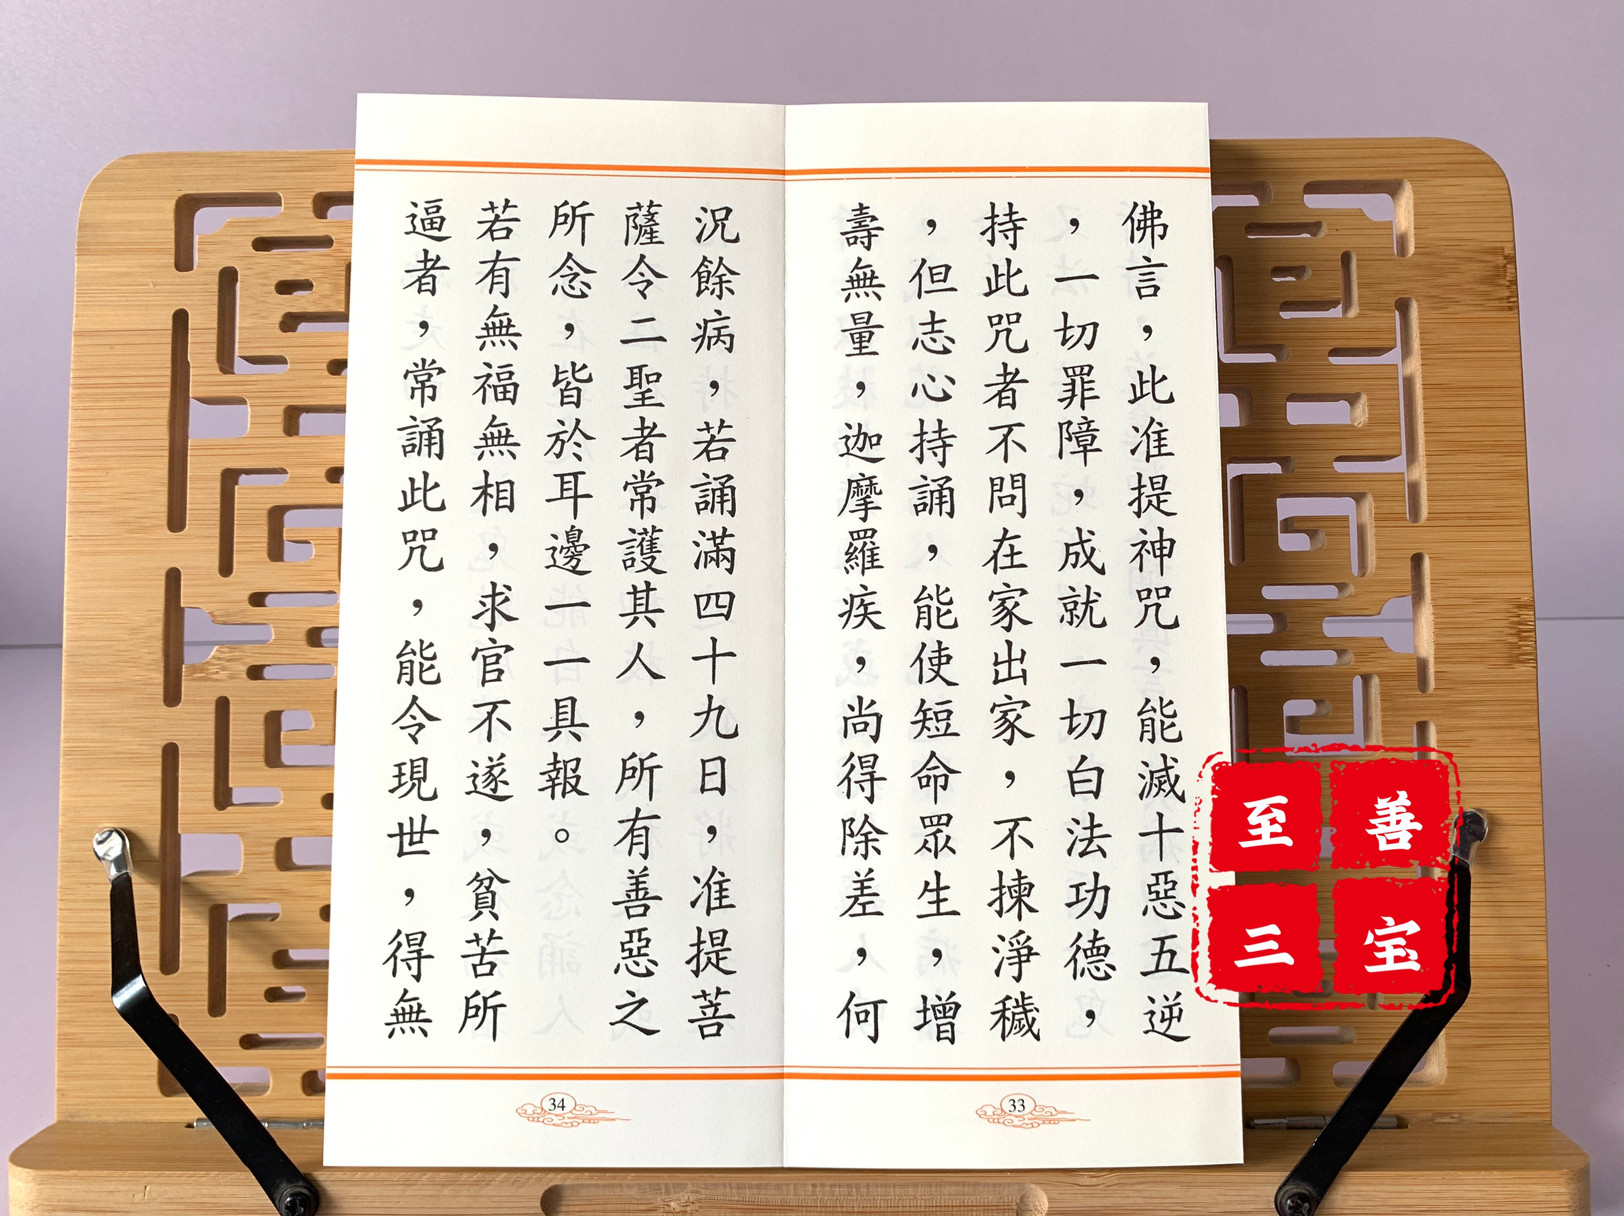 佛言，此准提神咒，能滅十惡五逆
，一切罪障，成就一切白法功德，
持此咒者不問在家出家，不揀淨穢
，但志心持誦，能使短命眾生，增
壽無量，迦摩羅疾，尚得除差，何
33
況餘病，若誦滿四十九日，准提菩
薩令二聖者常護其人，所有善惡之
所念，皆於耳邊一一具報。
若有無福無相，求官不遂，貧苦所
逼者，常誦此咒，能令現世，得無
34
至善
三宝